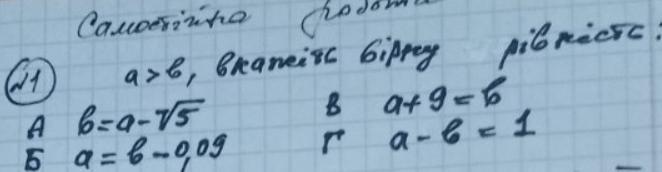 Самостійна робота
№1 a > b, вкажіть вірну рівність:
А b = a - √5 В a + 9 = b
Б a = b - 0,09 Г a - b = 1